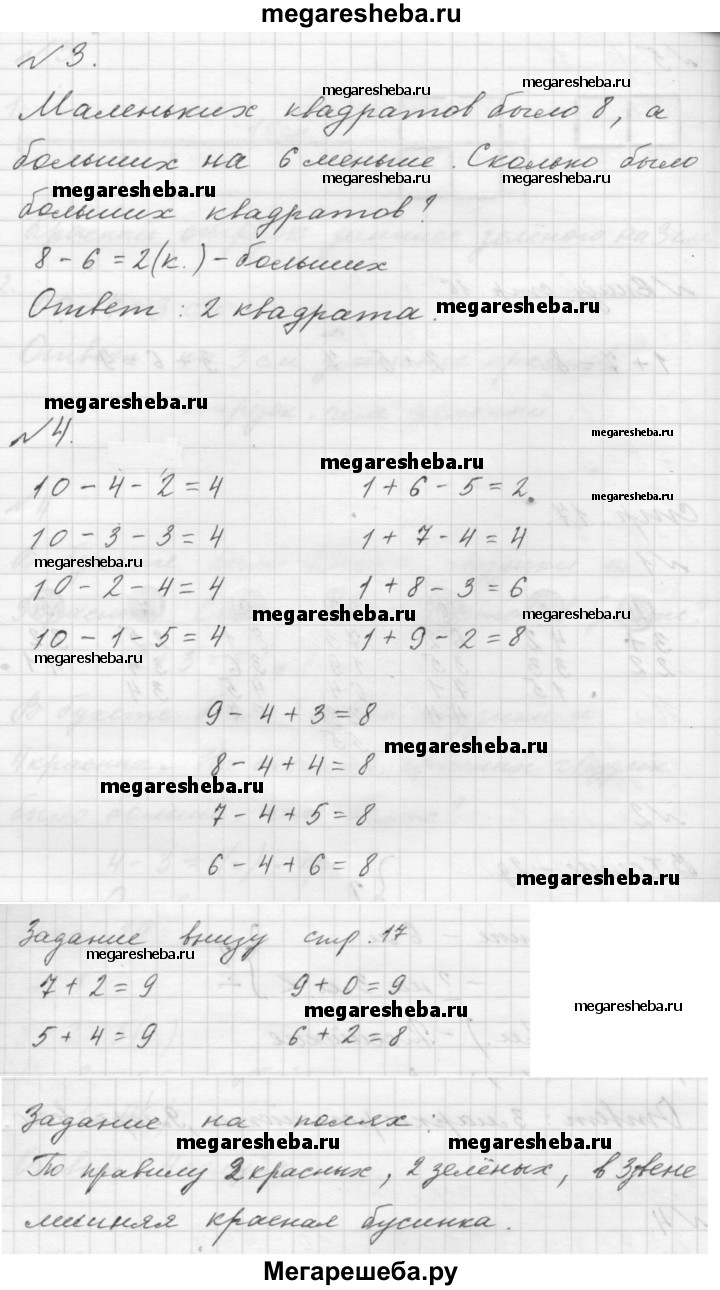 megaresheba.ru
№3.
megaresheba.ru megaresheba.ru
Маленьких квадратов было 8, а
больших на 6 меньше. Сколько было
megaresheba.ru megaresheba.ru megaresheba.ru
больших квадратов?
8 - 6 = 2 (к.) - больших
Ответ: 2 квадрата.
megaresheba.ru
megaresheba.ru
№4.
megaresheba.ru megaresheba.ru
10 - 4 - 2 = 4 1 + 6 - 5 = 2
megaresheba.ru
10 - 3 - 3 = 4 1 + 7 - 4 = 4
megaresheba.ru
10 - 2 - 4 = 4 1 + 8 - 3 = 6
megaresheba.ru megaresheba.ru
10 - 1 - 5 = 4 1 + 9 - 2 = 8
megaresheba.ru
9 - 4 + 3 = 8
megaresheba.ru
8 - 4 + 4 = 8
megaresheba.ru
7 - 4 + 5 = 8
6 - 4 + 6 = 8
megaresheba.ru
Задание внизу стр. 17
megaresheba.ru
7 + 2 = 9 9 + 0 = 9
megaresheba.ru megaresheba.ru
5 + 4 = 9 6 + 2 = 8
Задание на полях:
megaresheba.ru megaresheba.ru
По правилу 2 красных, 2 зелёных, в 3 звене
лишняя красная бусинка.
Мегарешеба.ру